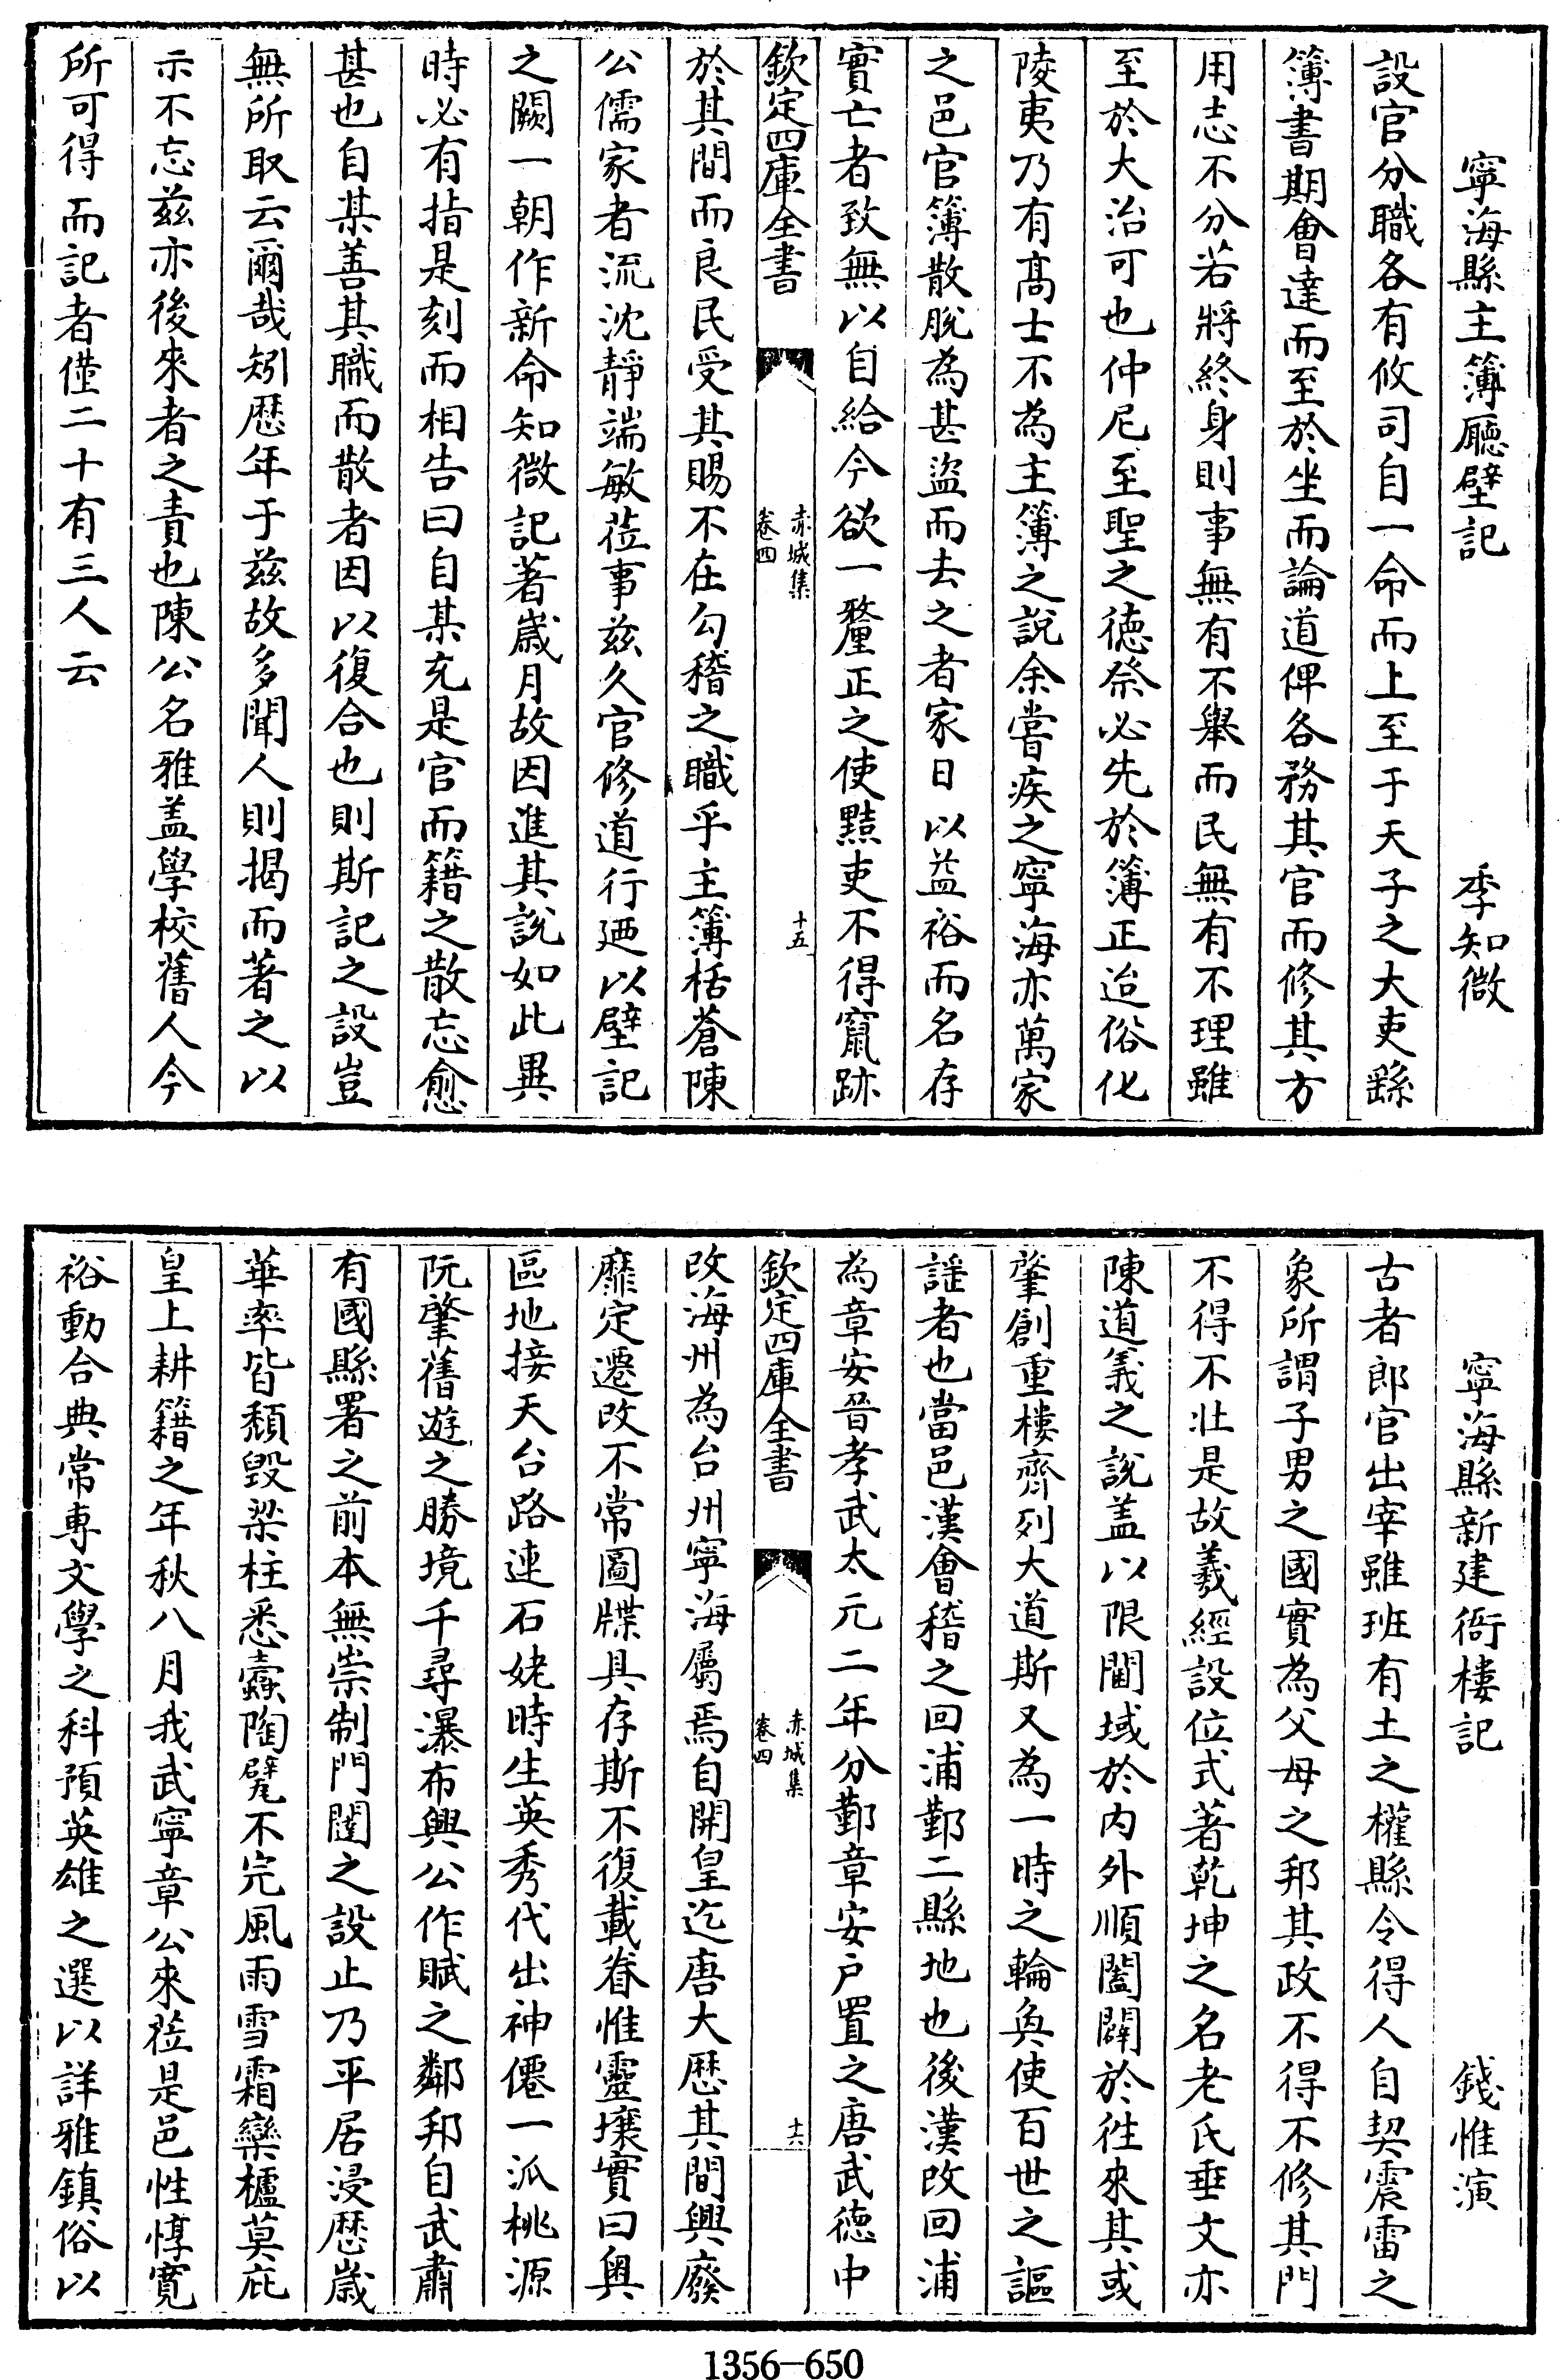 寧海縣主簿廳壁記 季知微
設官分職各有攸司自一命而上至于天子之大吏繇
簿書期會達而至於坐而論道俾各務其官而修其方
用志不分若將終身則事無有不舉而民無有不理雖
至於大治可也仲尼至聖之德祭必先於簿正迨俗化
陵夷乃有髙士不為主簿之說余嘗疾之寧海亦萬家
之邑官簿散脫為甚盜而去之者家日以益裕而名存
實亡者致無以自給今欲一釐正之使黠吏不得竄跡
欽定四庫全書 赤城集 卷四 十五
於其間而良民受其賜不在勾稽之職乎主簿栝蒼陳
公儒家者流沈靜端敏莅事兹久官修道行廼以壁記
之闕一朝作新命知微記著歳月故因進其說如此異
時必有指是刻而相告曰自某充是官而籍之散忘愈
甚也自某善其職而散者因以復合也則斯記之設豈
無所取云爾哉矧歴年于兹故多聞人則揭而著之以
示不忘兹亦後來者之責也陳公名雅盖學校舊人今
所可得而記者僅二十有三人云
寧海縣新建衙樓記 錢惟演
古者郎官出宰雖班有土之權縣令得人自契震雷之
象所謂子男之國實為父母之邦其政不得不修其門
不得不壯是故羲經設位式著乾坤之名老氏垂文亦
陳道義之說盖以限閫域於内外順闔闢於徃來其或
肇創重樓齊列大道斯又為一時之輪奐使百世之謳
謡者也當邑漢會稽之回浦鄞二縣地也後漢改回浦
為章安晉孝武太元二年分鄞章安戸置之唐武德中
欽定四庫全書 赤城集 卷四 十六
改海州為台州寧海屬焉自開皇迄唐大歴其間興廢
靡定遷改不常圖牒具存斯不復載眷惟靈壤實曰奥
區地接天台路連石姥時生英秀代出神僊一派桃源
阮肇舊遊之勝境千尋瀑布興公作賦之鄰邦自武肅
有國縣署之前本無崇制門闥之設止乃平居浸歴歳
華率皆頽毀梁柱悉蠧陶甓不完風雨雪霜欒櫨莫庇
皇上耕籍之年秋八月我武寧章公來莅是邑性惇寛
裕動合典常專文學之科預英雄之選以詳雅鎮俗以
1356-650